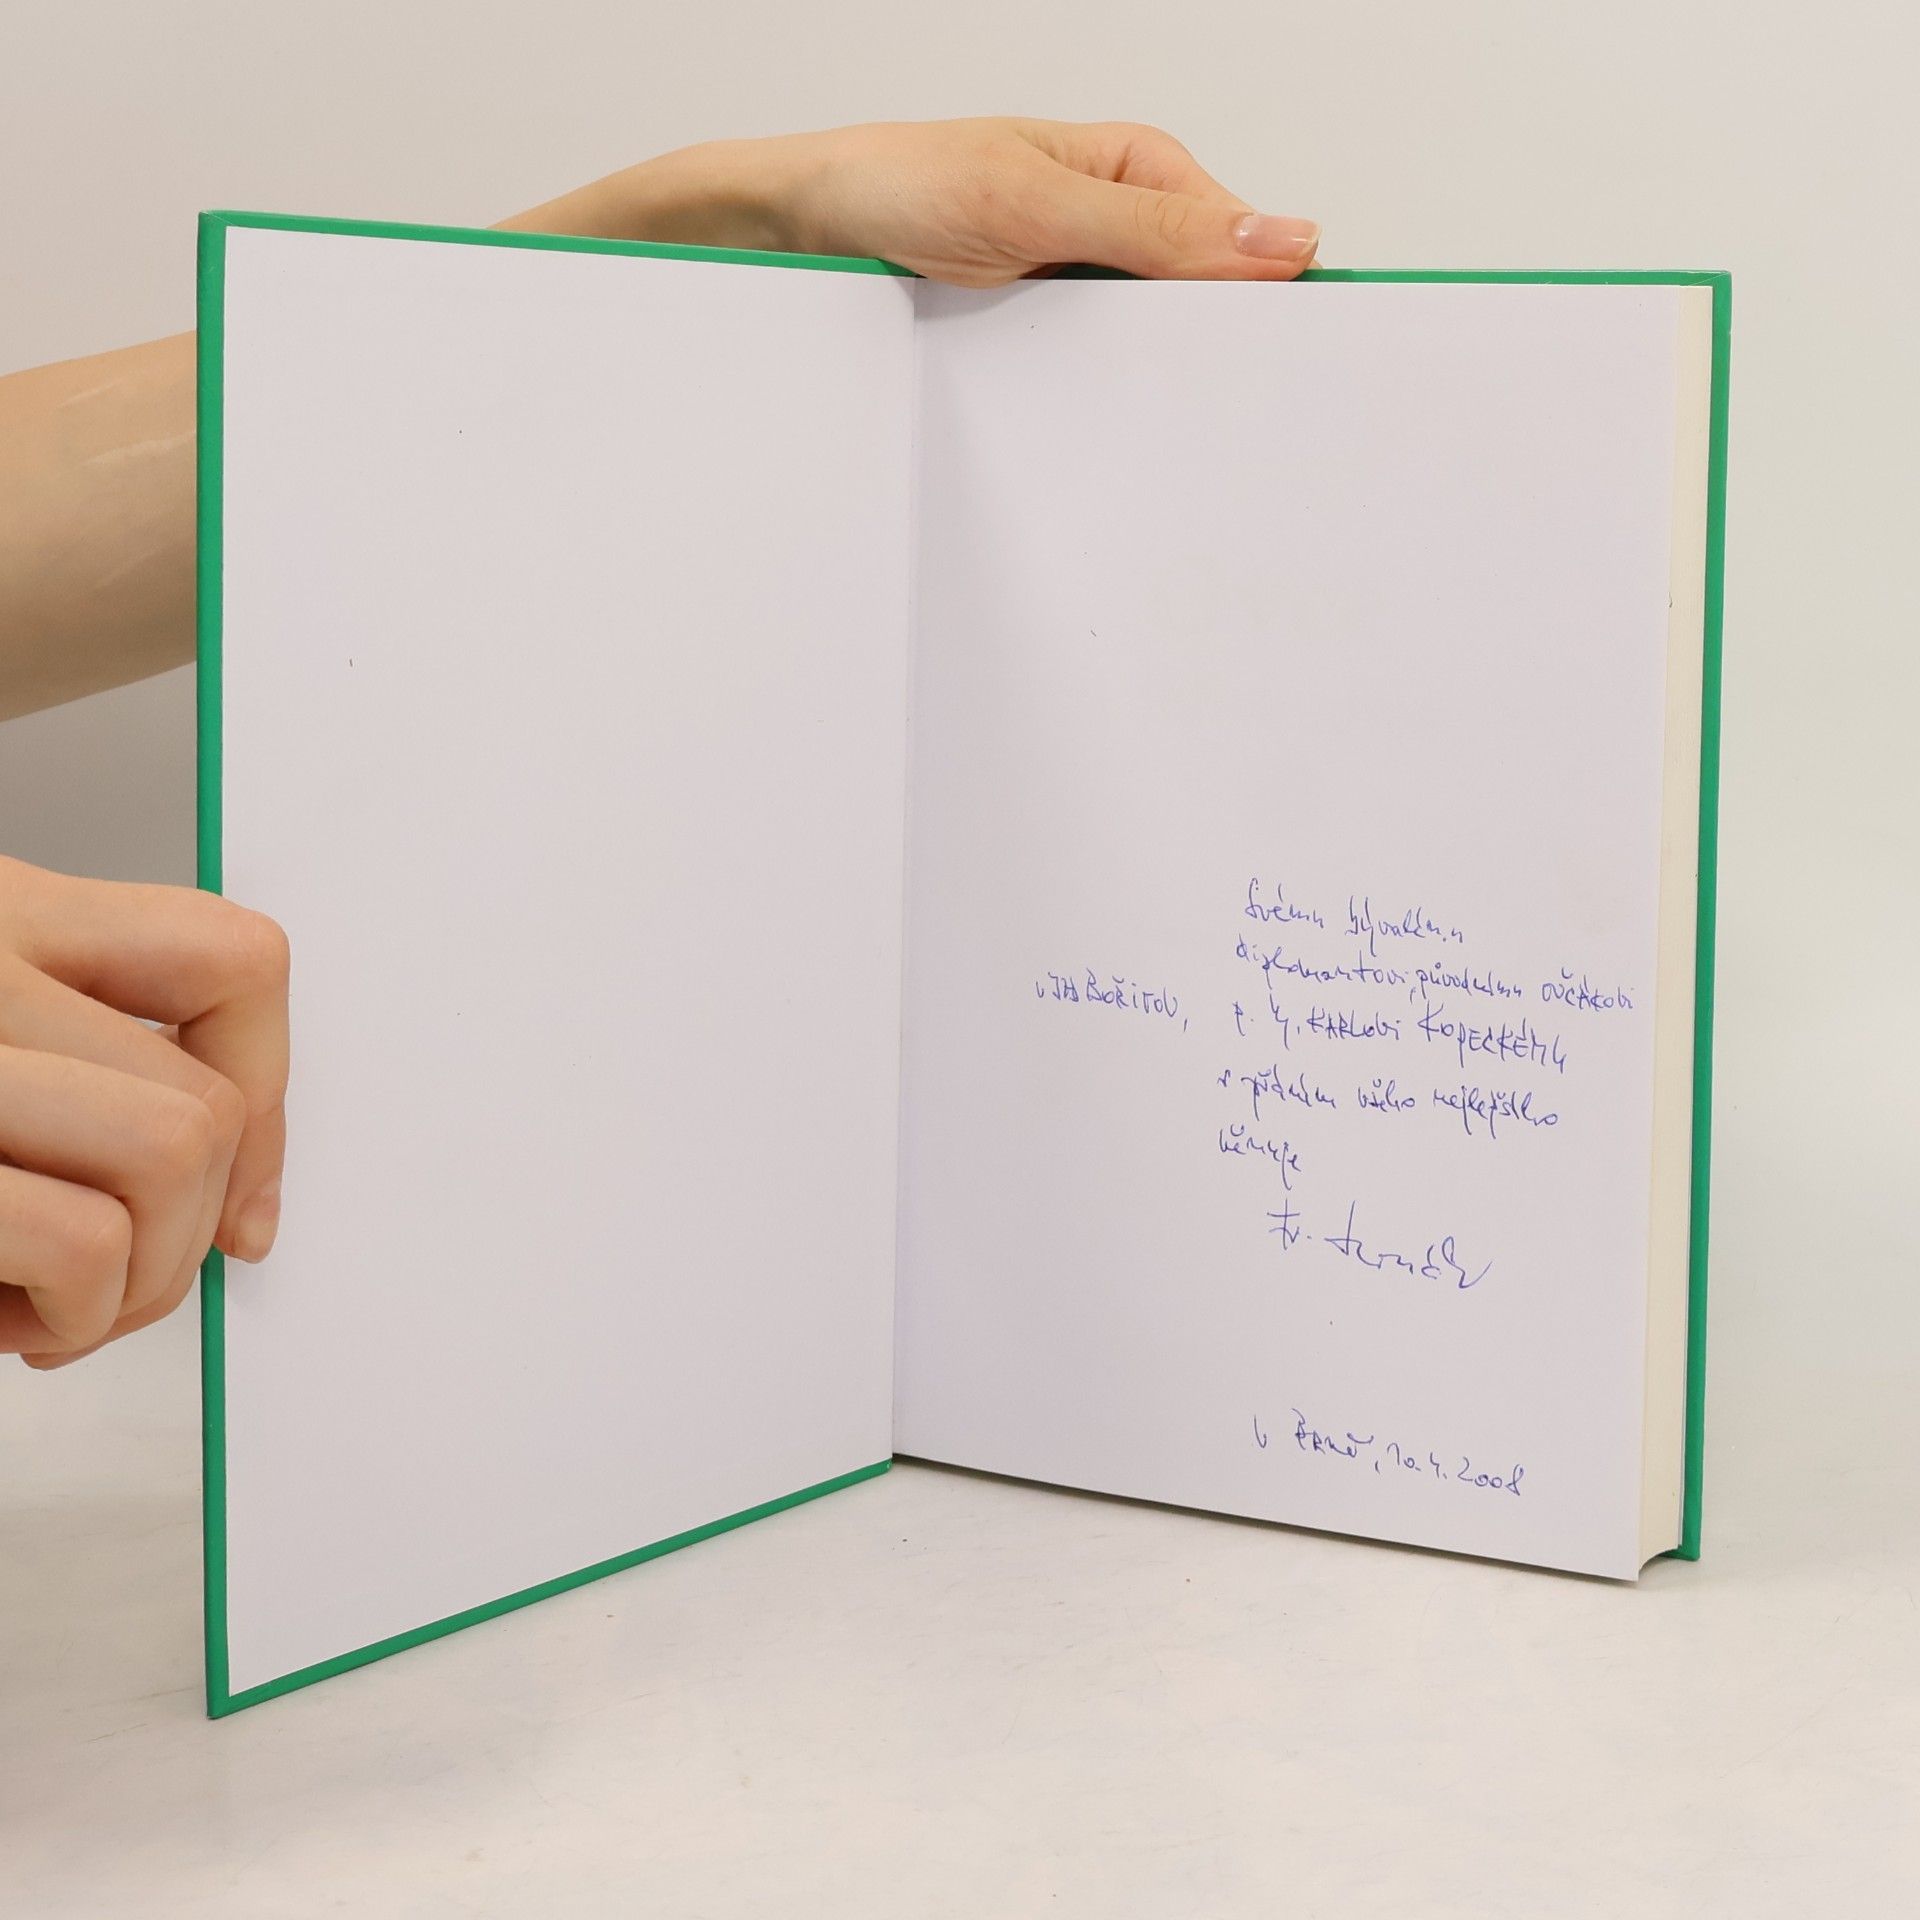 Svému bývalému
diplomantovi, původnímu ovčákovi
v JZD BOŘITOV,
p. Ing. KARLOVI KOPECKÉMU
s přáním všeho nejlepšího
věnuje
Fr. Horák
V BRNĚ, 10.4.2008